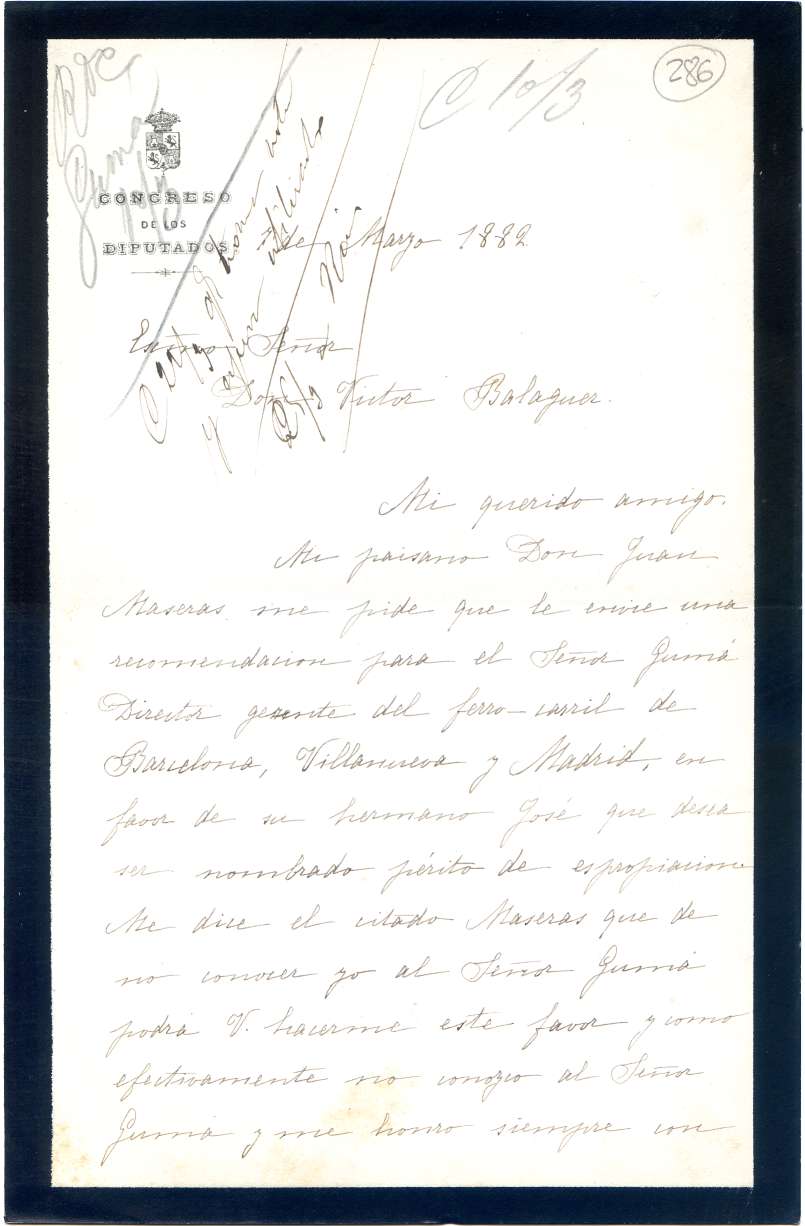 286
C 10/3
Guma
CONGRESO
DE LOS
DIPUTADOS
de Marzo 1882
C 20/3
y
Exmo. Señor
Don Victor Balaguer.
Mi querido amigo.
Mi paisano Don Juan
Maseras me pide que le envie una
recomendacion para el Señor Gumá
Director gerente del ferro-carril de
Barcelona, Villanueva y Madrid, en
favor de su hermano José que desea
ser nombrado périto de espropiacion
Me dice el citado Maseras que de
no conocer yo al Señor Gumá
podrá V. hacerme este favor y como
efectivamente no conozco al Señor
Gumá y me honro siempre con